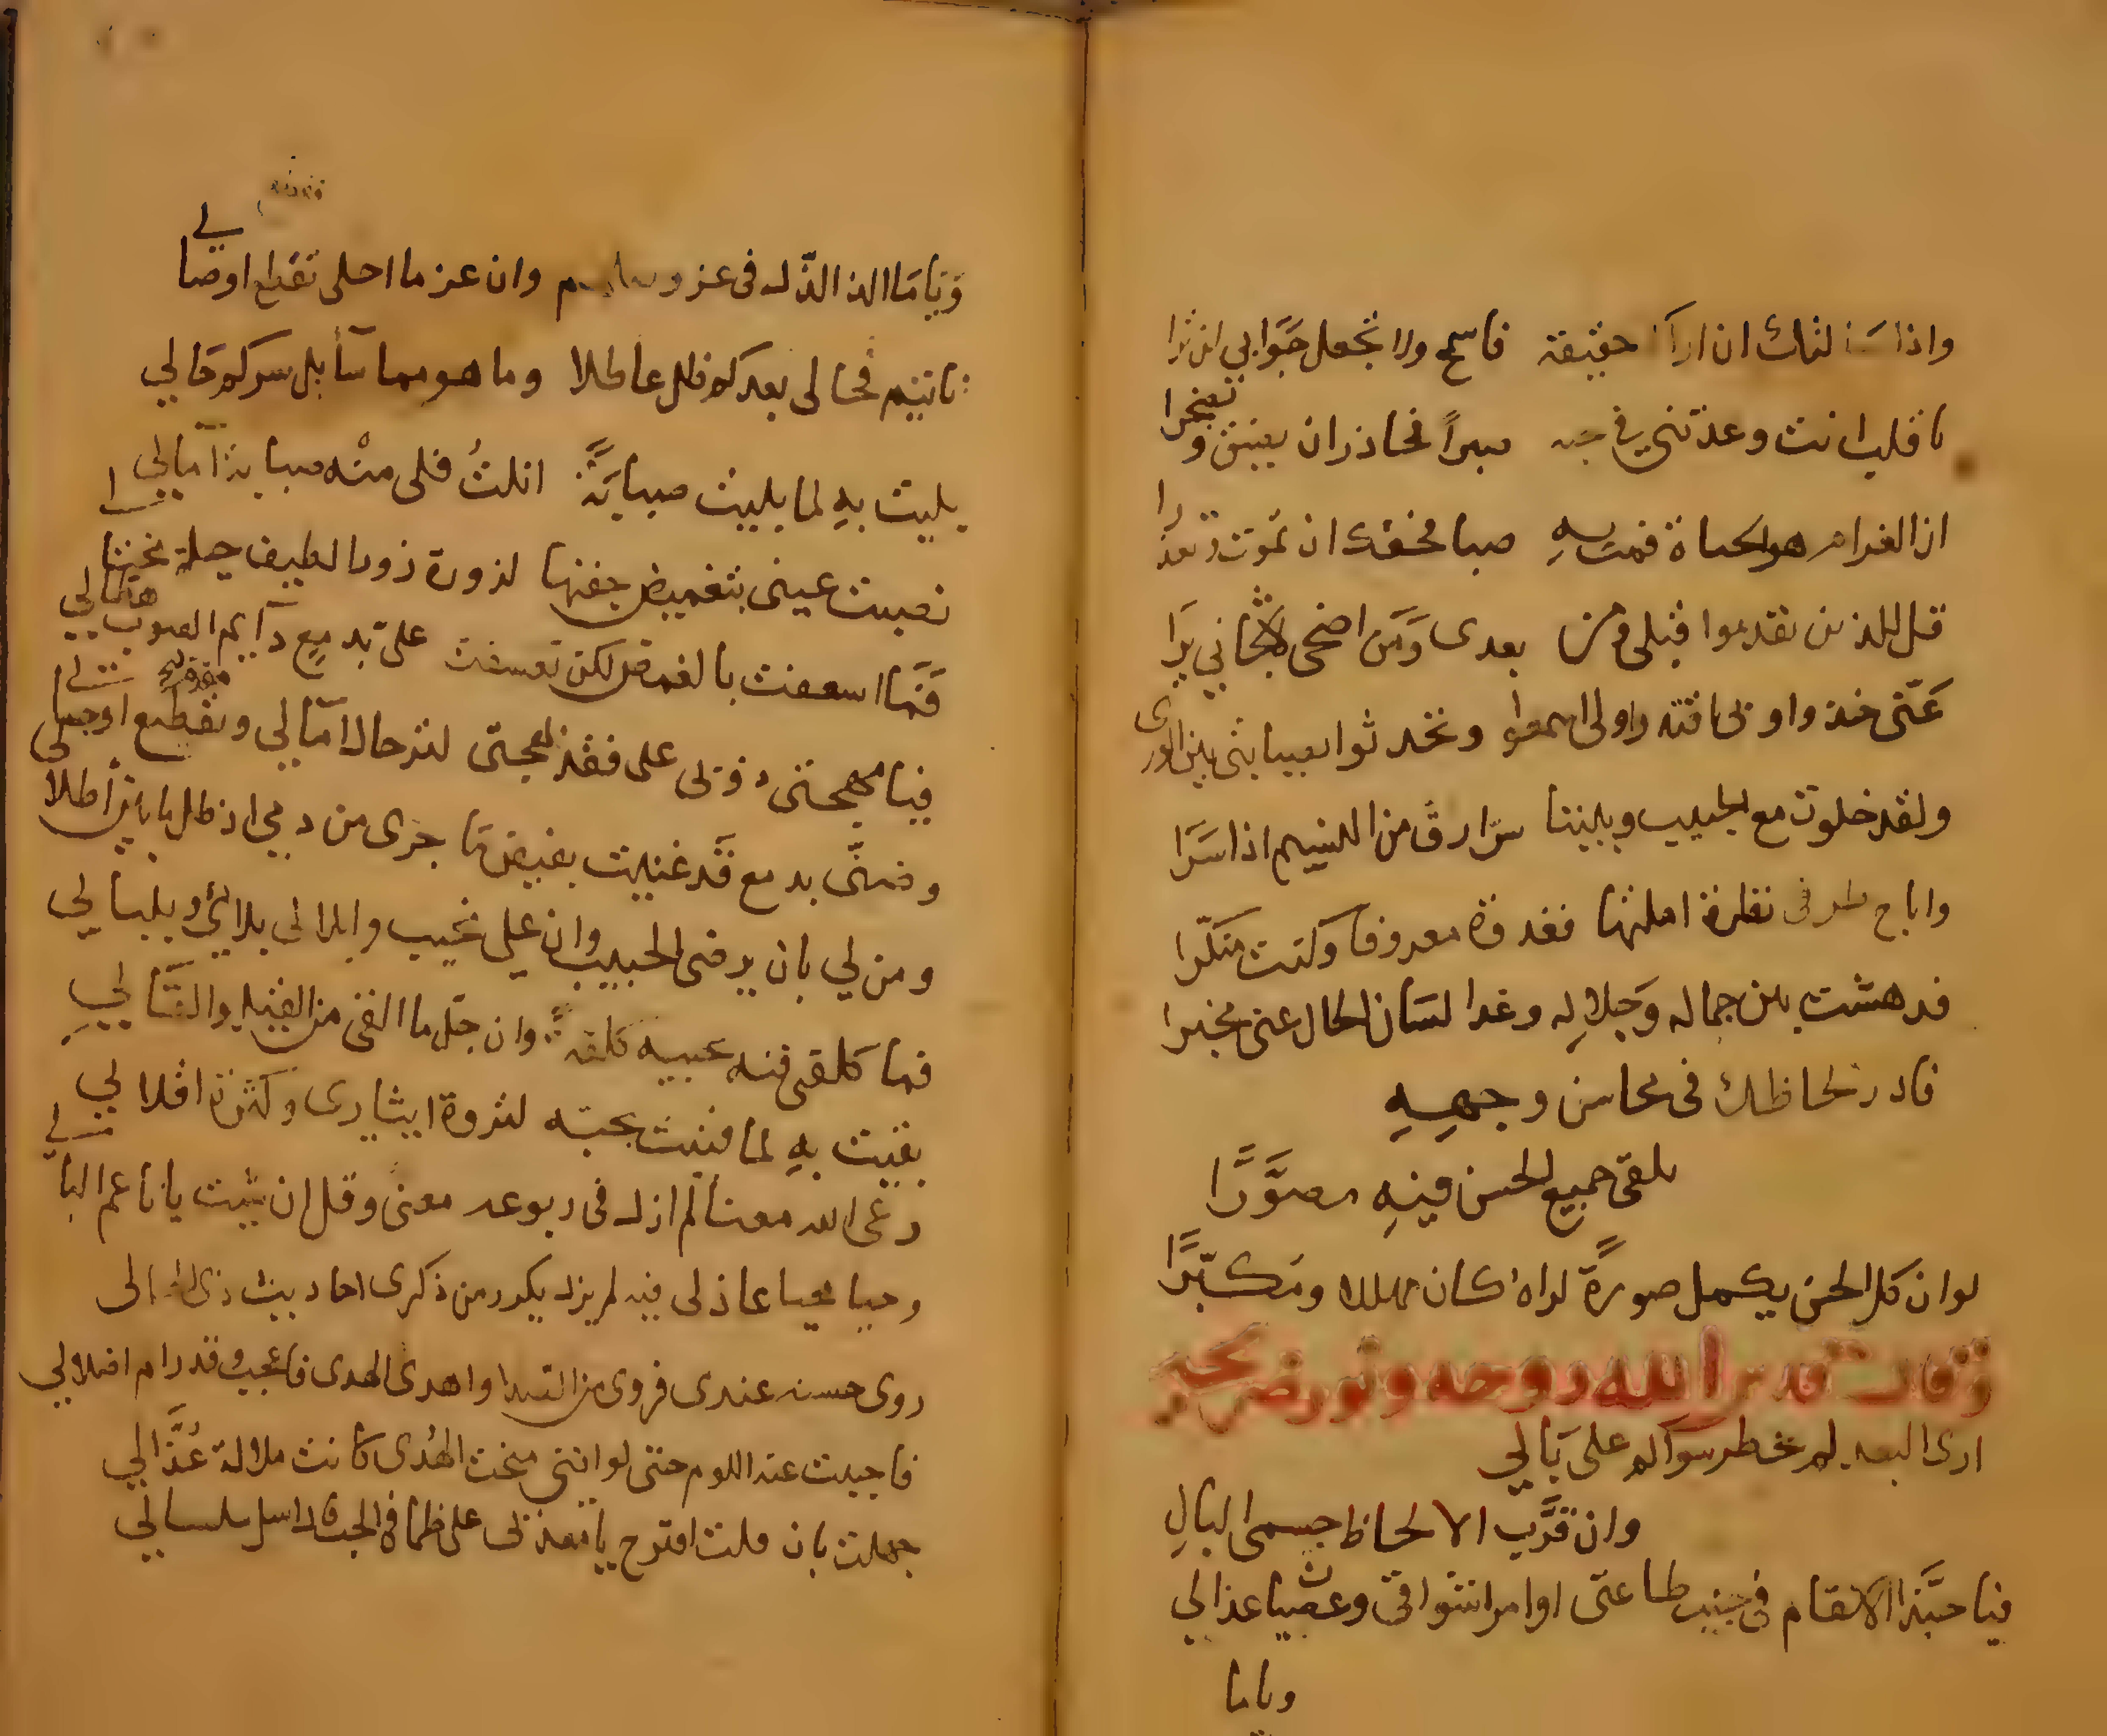 واذا سالتك ان اراك حقيقة فاسمح ولا تجعل جوابي لن ترا
يا قلب انت وعدتني في حبه صبراً فحاذر ان يضيق وتضجرا
ان الغرام هو الحياة فمت بهِ صبا فحقك ان تموت وتعذرا
قل للذين تقدموا قبلي ومن بعدى وَمَن اضحى لاشجاني يرَا
عَنّى خذوا وبى اقتدوا ولى اسمعوا وتحدثوا بصبابتى بين الورى
ولقد خلوت مع الحبيب وبيننا سرّا رق من النسيم اذا سَرَا
واباح طرفى نظرة املتها فغدوة معروفا وكنت منكّرا
فدهشت بين جماله وَجلالِه وغدا لسَان الحال عنى مخبرا
فادر لحاظك فى محاسن وجههِ
يلقى جميع الحسن فيهِ مصوَّرًا
لو ان كل الحسن يكمل صورةً لراهُ كان مهللا ومكبّرًا
وقال قدس الله روحه ونور ضريحه
ارى البعد لم يخطر سواكم على بَالي
وان قرَّب الالحاظ جسمى البالِ
فيا حبّذا الاسقام فى جنب طاعتى اوامر اشواقى وعصيا عذالى
وياما
وَيَامَا الذ الذّل فى عز وصلكم وان عز ما احلى تقطع اوصالي
نايتم فحالى بعدكم ظل عاطلا وما هو مما سآ بل سركم حَالي
بليت بهِ لما بليت صبابَةً ابلتُ فلى منْه صبابة ابلالي
نصبت عينى بتغميض جفنها لزورة زور الطيف حيلة محتال
فَمَا اسعفت بالغمض لكن تعسفت على بدمعٍ دآيم الصوب هطالي
فيا مهجتى ذوبى على فقد بهجتى لترحال امَالي ومقدم اوجالى
وضنّى بدمع قَد غنيت بفيض مَا جرى من دمي اذ طل ما بين اطلال
ومن لي بان يرضى الحبيب وان علي نحيب وابلالى بلآئي وبلبالي
فما كلفى فيه عبيه كلفة وان جلّ ما القى من القيل والقَالي
بقيت بهِ لما فنيت بحبّه لثروة ايثارى وكثرة اقلالي
رعى الله مغنا لم ازل فى ربوعه معنىً وقل ان شيت يا ناعم البالي
وحيا محيا عاذلى فيه لم يزل يكرر من ذكرى احاديث ذى الخالى
روى حسنه عندى فروى من الصدا واهدى الهدى فاعجب وقد رام اضلالي
فاحببت عنه اللوم حتى لو اننى منحت الهُدى كانت ملالة عُذَّالي
جهلت بان قلت اقترح يا معذبى على ظما فى الحب ماء سلسالي